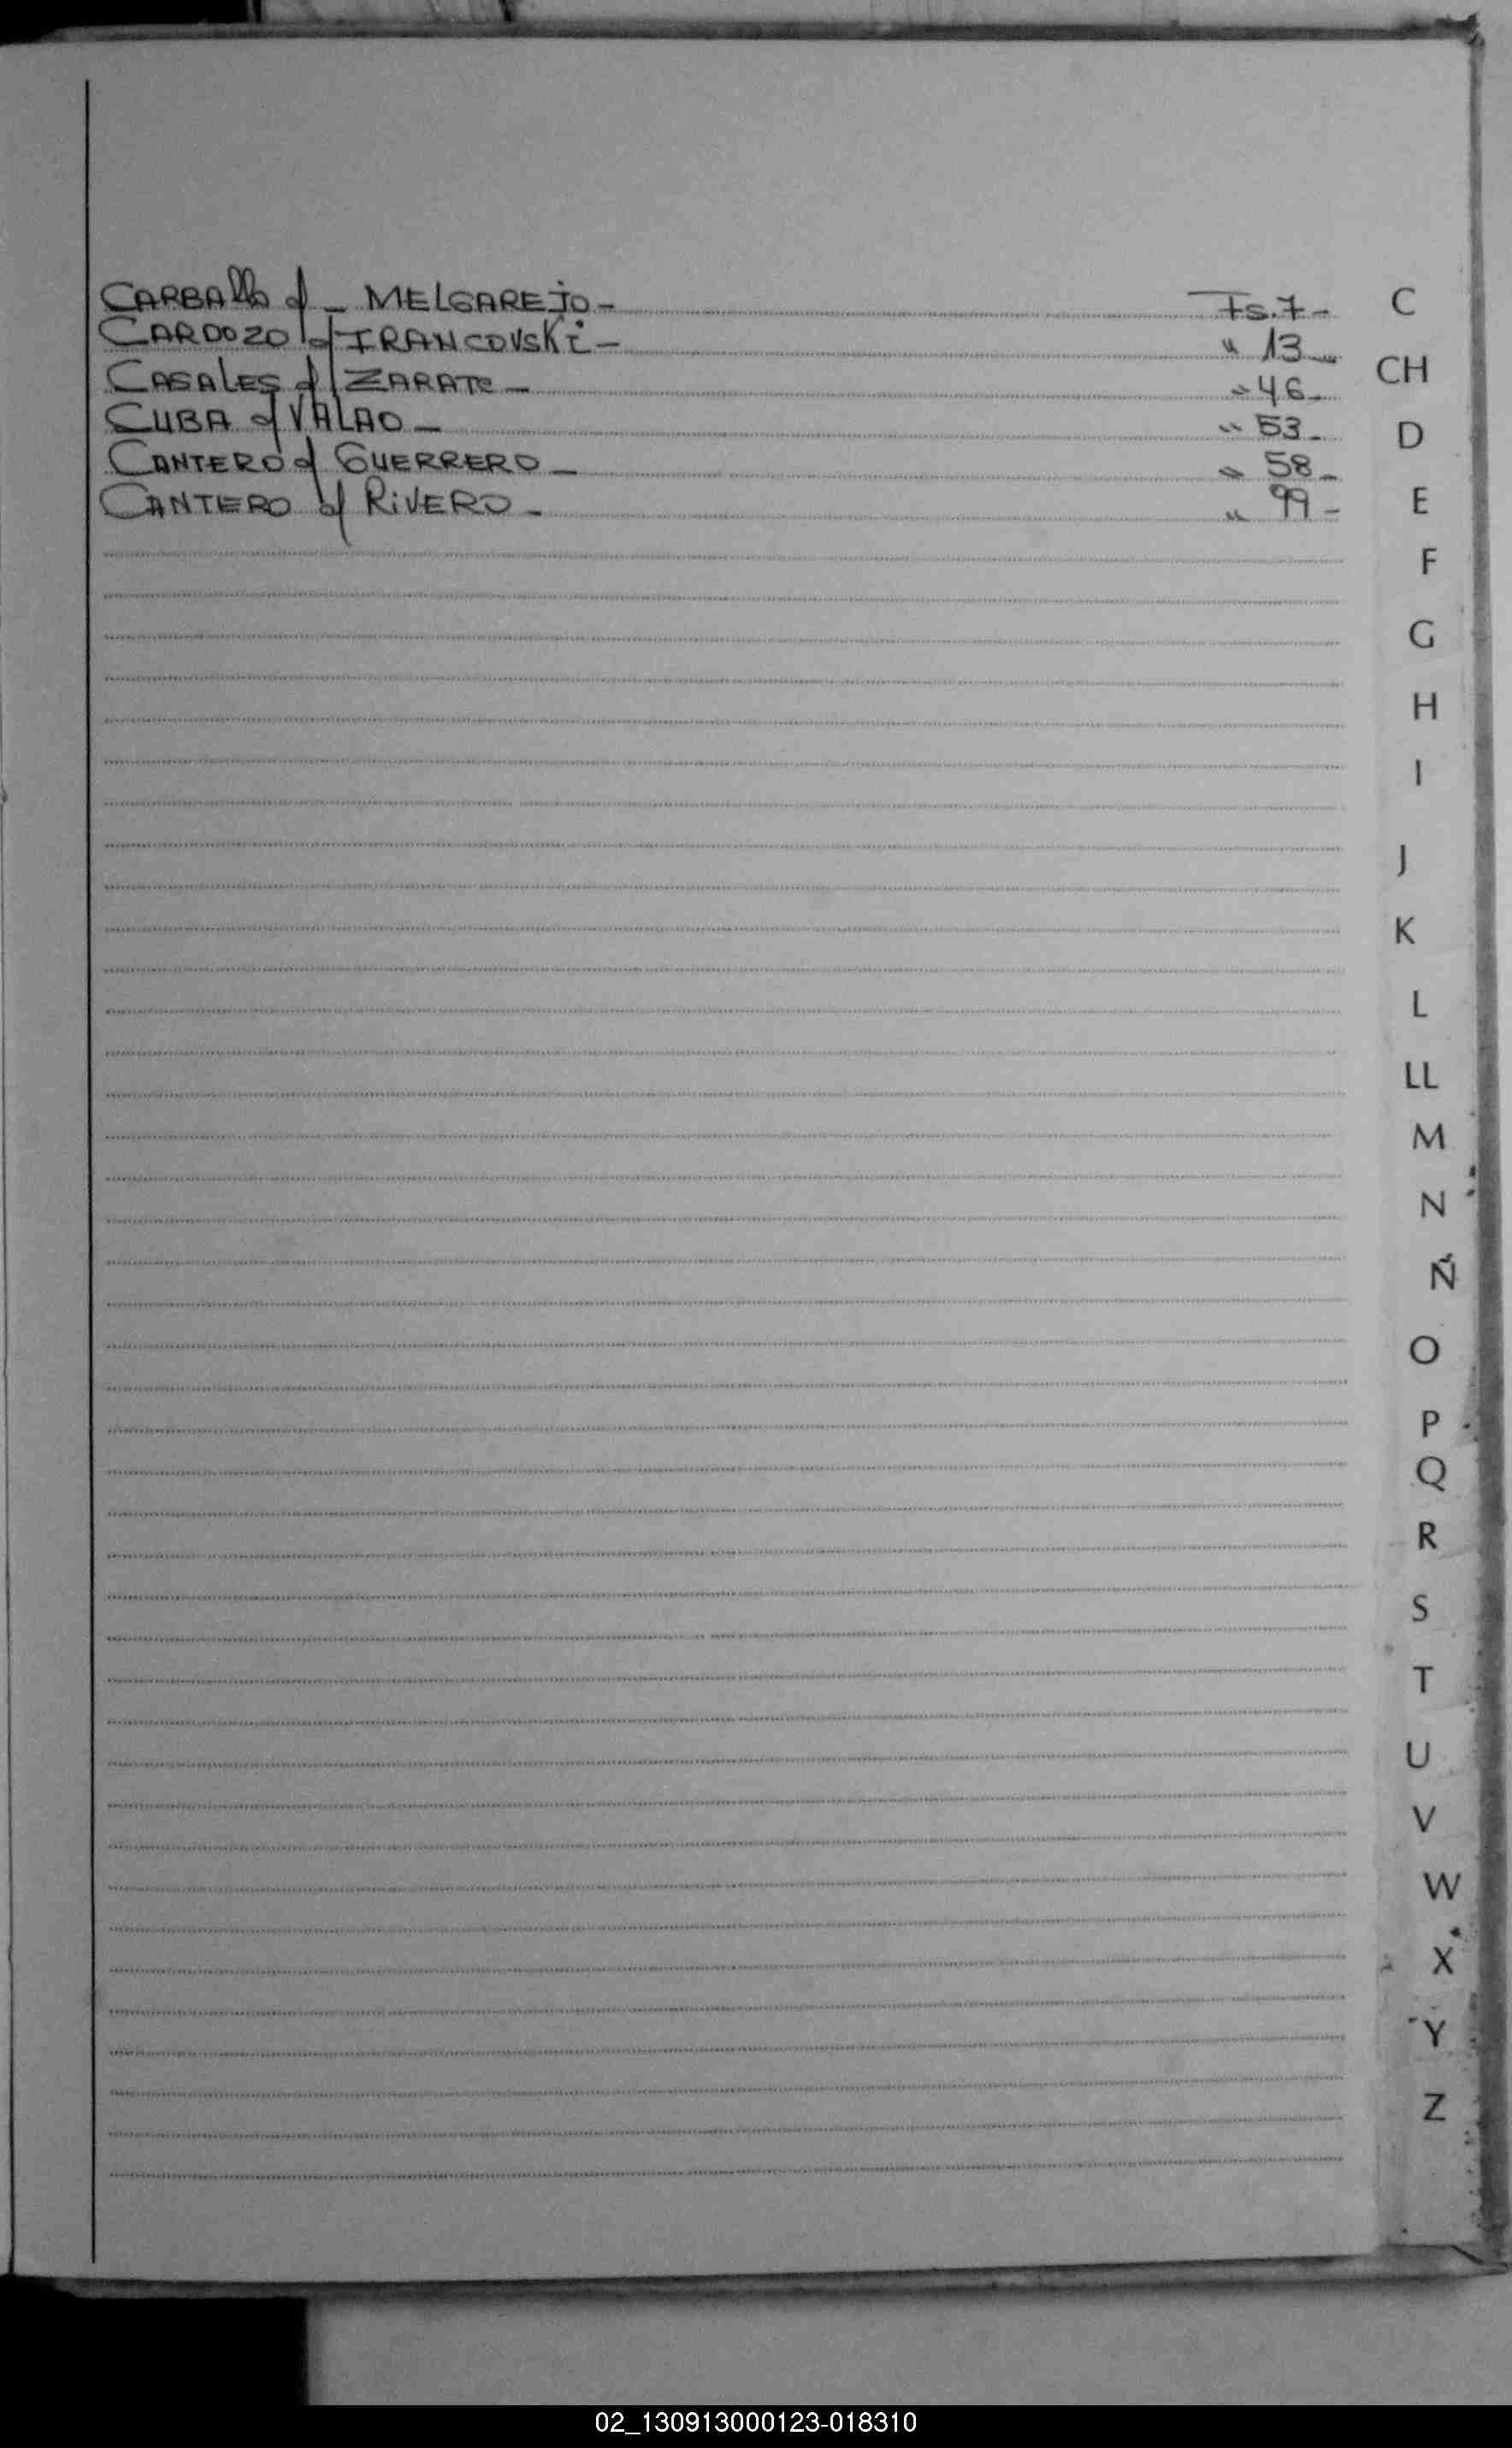 CARBAllo c/ - MELGAREJO - Fs. 7 -
CARDOZO c/ IRANCOVSKI - " 13 -
CASALES c/ ZARATE - " 46 -
CUBA c/ VALAO - " 53 -
CANTERO c/ GUERRERO - " 58 -
CANTERO c/ RIVERO - " 99 -
C
CH
D
E
F
G
H
I
J
K
L
LL
M
N
Ñ
O
P
Q
R
S
T
U
V
W
X
Y
Z
02_130913000123-018310